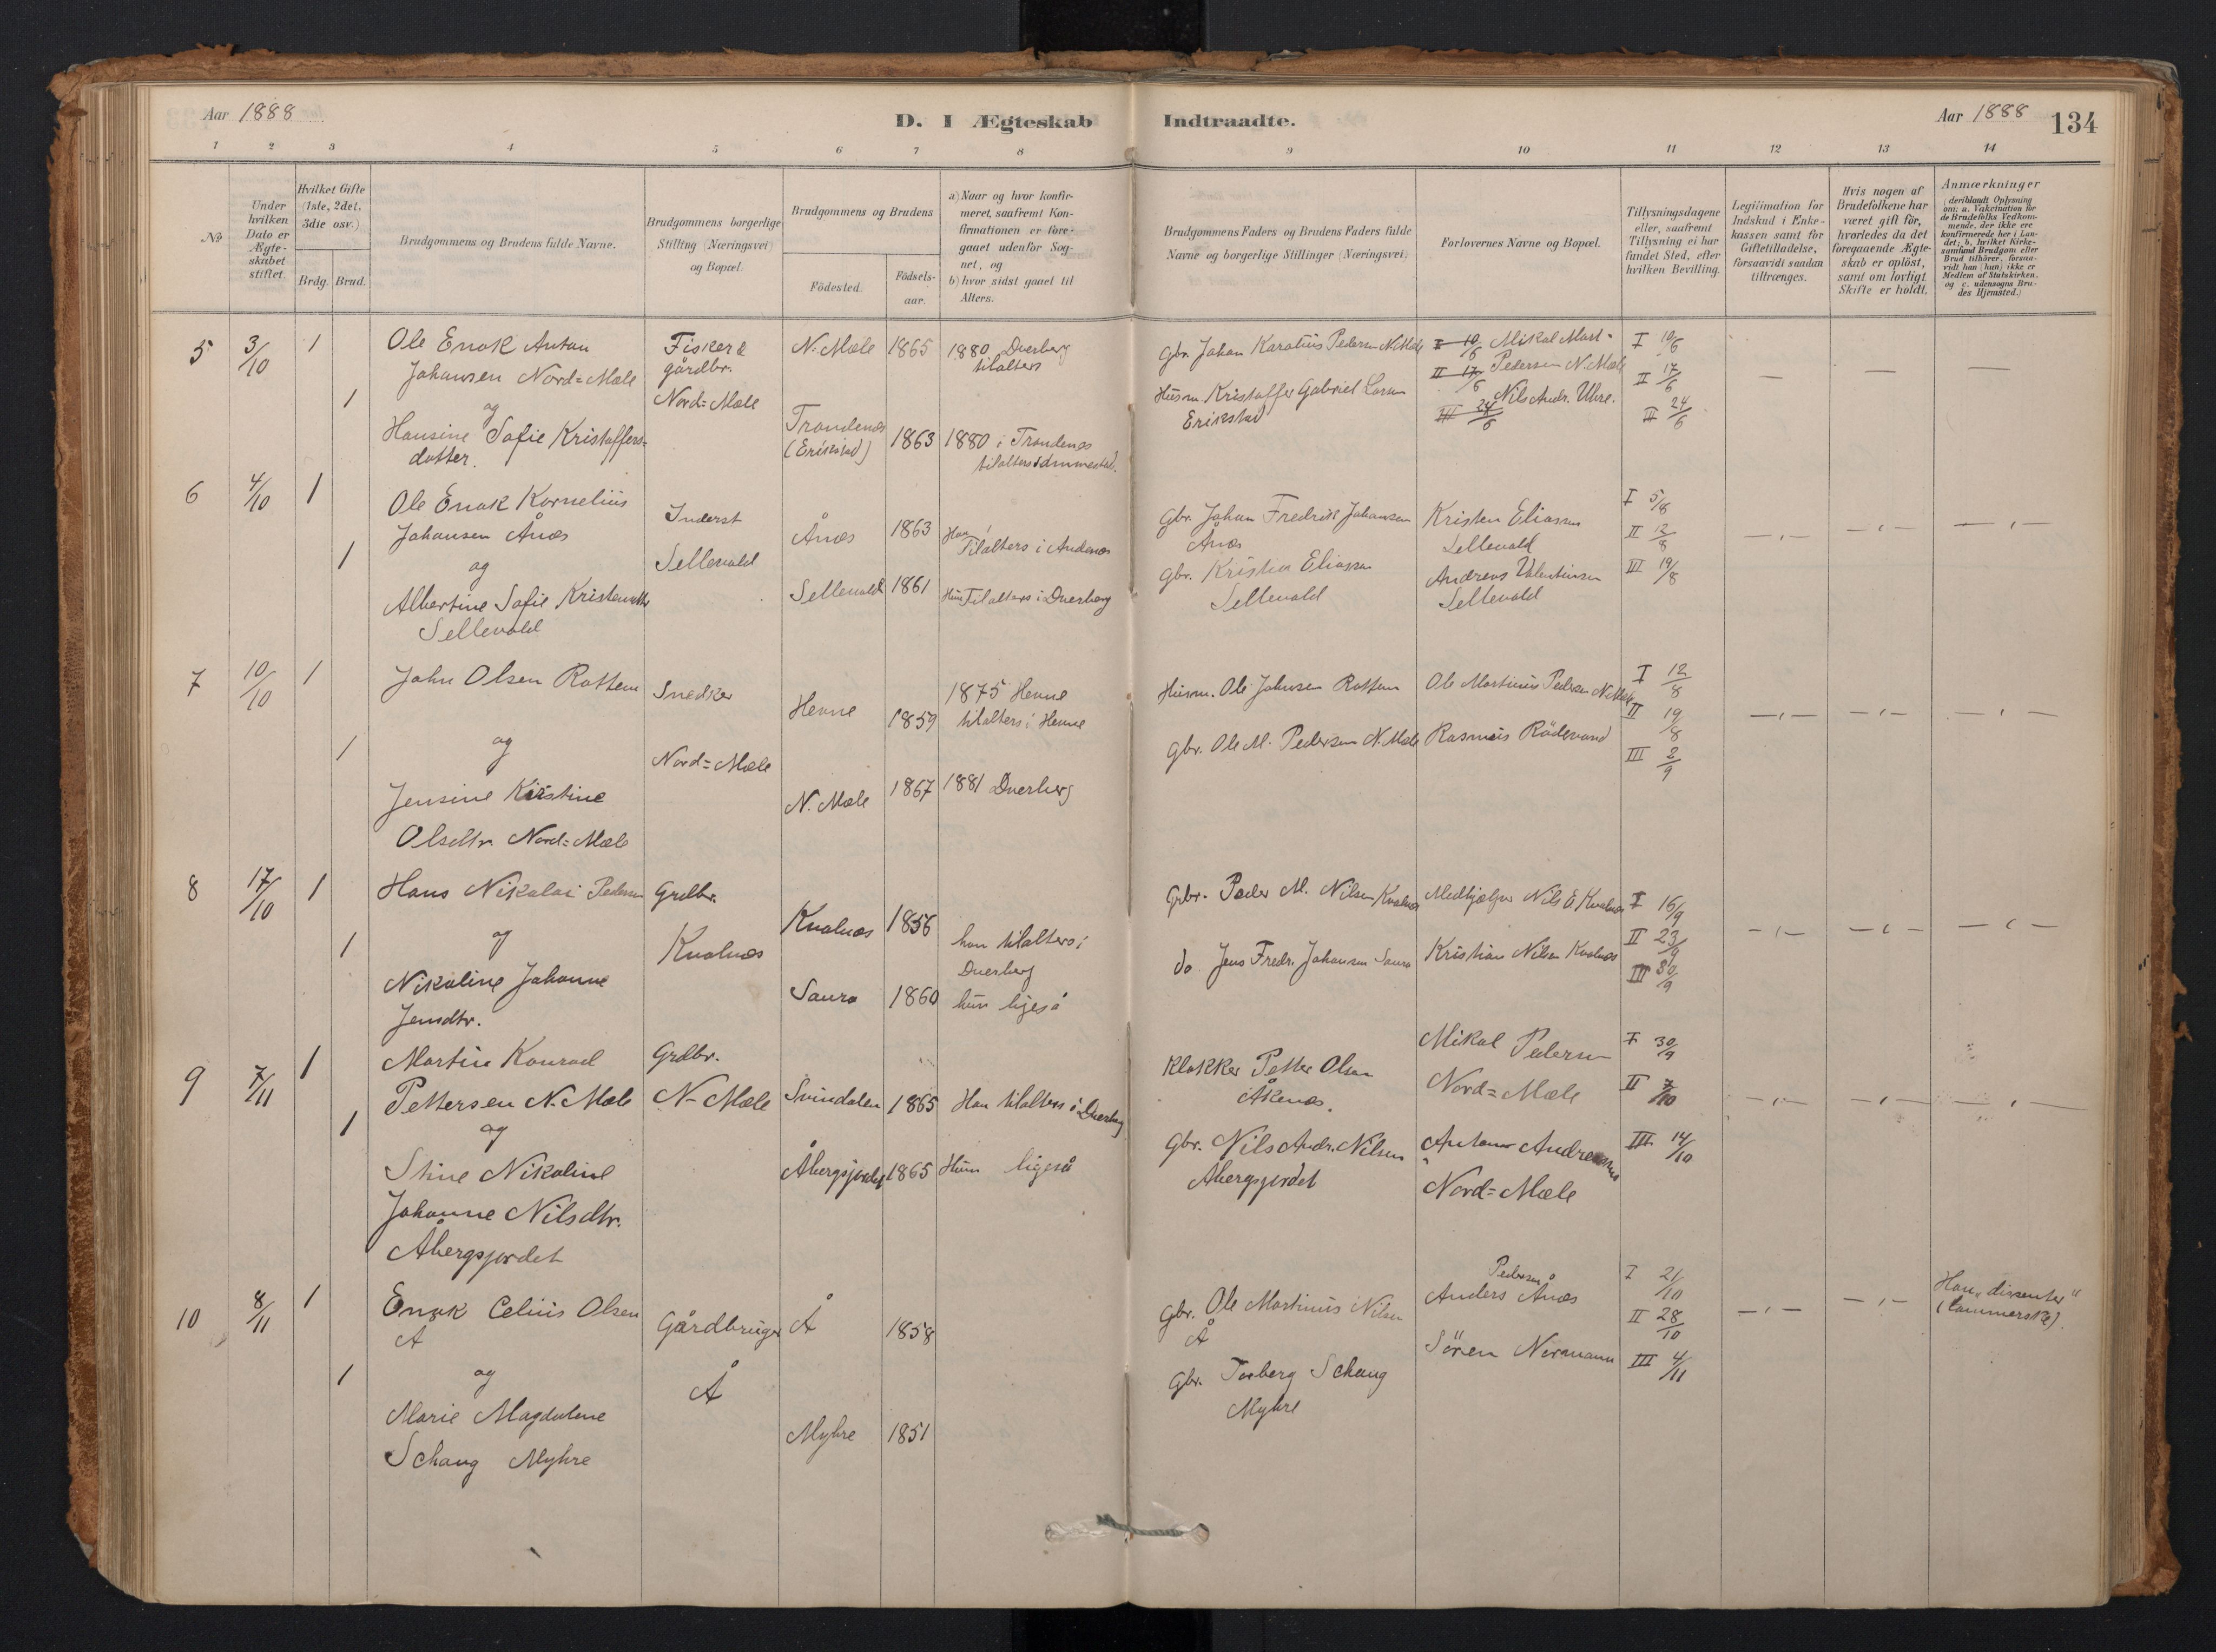 Aar 1888
D. I Ægteskab
Indtraadte.
Aar 1888
134
1 2 3 4 5 6 7 8 9 10 11 12 13 14
No
Under
hvilken
Dato er
Ægte-
skabet
stiftet.
Hvilket Gifte
(1ste, 2det,
3die osv.)
Brdg. Brud.
Brudgommens og Brudens fulde Navne.
Brudgommens borgerlige
Stilling (Næringsvei)
og Bopæl.
Brudgommens og Brudens
Födested.
Födsels-
aar.
a) Naar og hvor konfir-
meret, saafremt Kon-
firmationen er fore-
gaaet udenfor Sog-
net, og
b) hvor sidst gaaet til
Alters.
Brudgommens Faders og Brudens Faders fulde
Navne og borgerlige Stillinger (Næringsvei)
Forlovernes Navne og Bopæl.
Tillysningsdagene
eller, saafremt
Tillysning ei har
fundet Sted, efter
hvilken Bevilling.
Legitimation for
Indskud i Enke-
kassen samt for
Giftetilladelse,
forsaavidt saadan
tiltrænges.
Hvis nogen af
Brudefolkene har
været gift för,
hvorledes da det
foregaaende Ægte-
skab er oplöst,
samt om lovligt
Skifte er holdt.
Anmærkninger
(deriblandt Oplysning
om: a. Vakcination for
de Brudefolks Vedkom-
mende, der ikke ere
konfirmerede her i Lan-
det; b. hvilket Kirke-
samfund Brudgom eller
Brud tilhörer, forsaa-
vidt han (hun) ikke er
Medlem af Statskirken,
og c. udensogns Bru-
des Hjemsted.)
5 3/10 1
1
Ole Enok Anton
Johansen Nord=Mæle
og
Hansine Sofie Kristoffers-
datter.
Fisker &
gårdbr.
Nord=Mæle
N. Mæle 1865
Trondenæs
(Erikstad) 1863
1880 Dverberg
tilalters
1880 i Trondenæs
tilalters sammested.
Gbr. Johan Karolius Pedersen N. Mæle
Husm. Kristoffer Gabriel Larsen
Erikstad
I 10/6 Mikal Mart-
II 17/6 Pedersen N. Mæle
Nils Andr. Uhre.
III 24/6
I 10/6
II 17/6
II 24/6
6 4/10 1
1
Ole Enok Kornelius
Johansen Ånæs
og
Albertine Sofie Kristensdtr
Sellevold
Inderst
Sellevold
Ånæs 1863
Sellevold 1861
Han
Tilalters i Andenæs
Hun Tilalters i Dverberg
Gbr. Johan Fredrik Johansen
Ånæs
Gbr. Kristen Eliassen
Sellevold
Kristen Eliassen
Sellevold
Andreas Valentinsen
Sellevold
I 5/8
II 12/8
III 19/8
7 10/10 1
1
John Olsen Rottem
og
Jensine Kristine
Olsdtr. Nord=Mæle
Snedker
Nord=Mæle
Hevne 1859
N. Mæle 1867
1875 Hevne
tilalters i Hevne
1881 Dverberg
Husm. Ole Johnsen Rottem
Gbr. Ole M. Pedersen N. Mæle
Ole Martinus Pedersen N. Mæle
Rasmus Rödevand
I 12/8
II 19/8
III 2/9
8 17/10 1
1
Hans Nikolai Pedersen
og
Nikoline Johanne
Jensdtr.
Grdbr.
Kvalnæs
Kvalnæs 1856
Saura 1860
han tilalters i
Dverberg
hun ligeså
Gbr. Peder M. Nilsen Kvalnæs
do. Jens Fredr. Johansen Saura
Medhjælper Nils E Kvalnæs
Kristian Nilsen Kvalnæs
I 16/9
II 23/9
III 30/9
9 7/11 1
1
Martin Konrad
Pettersen N. Mæle
og
Stine Nikoline
Johanne Nilsdtr.
Åbergsjordet
Grdbr.
N-Mæle
Svindalen 1865
Åbergsjordet 1865
Han tilalters i Dverberg
Hun ligeså
Klokker Petter Olsen
Åkenæs.
Gbr. Nils Andr. Nilsen
Åbergsjordet
Mikal Pedersen
Nord=Mæle
Anton Andreassen
Nord=Mæle
I 30/9
II 7/10
III 14/10
10 8/11 1
1
Enok Celius Olsen
Å
og
Marie Magdalene
Schaug Myhre
Gårdbruger
Å
Å 1858
Myhre 1851
Gbr. Ole Martinus Nilsen
Å
Gbr. Torberg Schaug
Myhre
Pedersen
Anders Ånæs
Sören Normann
I 21/10
II 28/10
III 4/11
Han „dissenter"
(Lammerske).